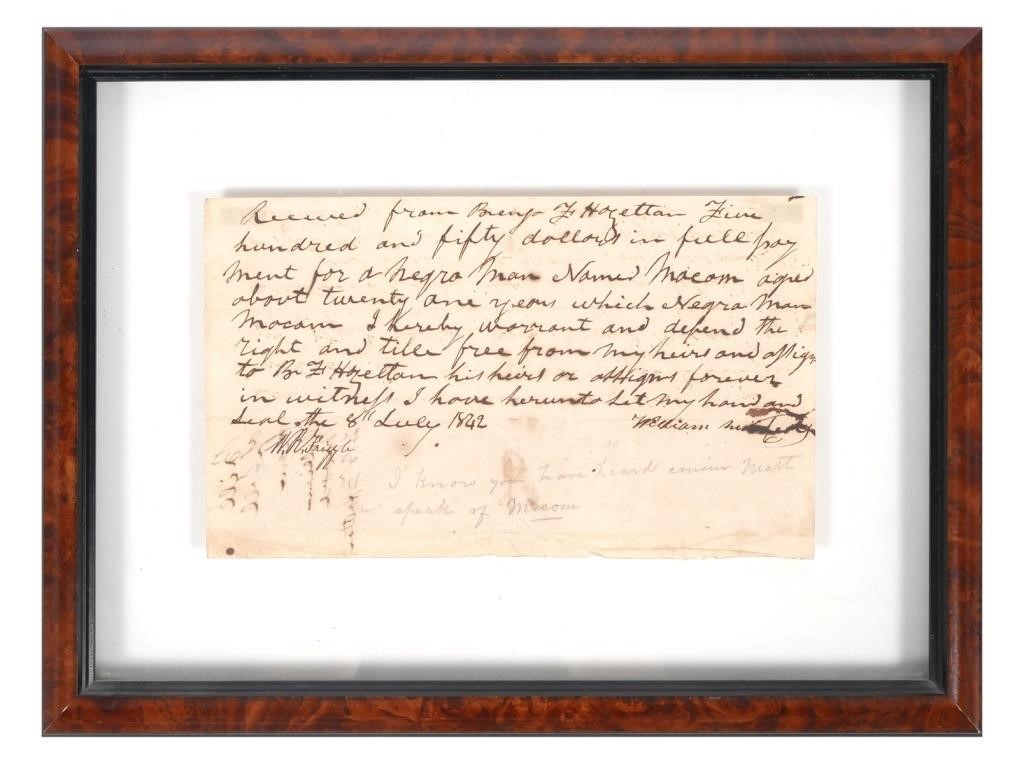 Received from Benj F Hozettan Five
hundred and fifty dollars in full pay
ment for a Negro Man Named Macom aged
about twenty one years which Negro Man
Macom I hereby warrant and defend the
right and title free from my heirs and assigns
to B F Hozettan his heirs or assigns forever
in witness I have hereunto set my hand and
seal the 8th July 1842 William
W. R.
I know you have heard cousin Matt
speak of Macom